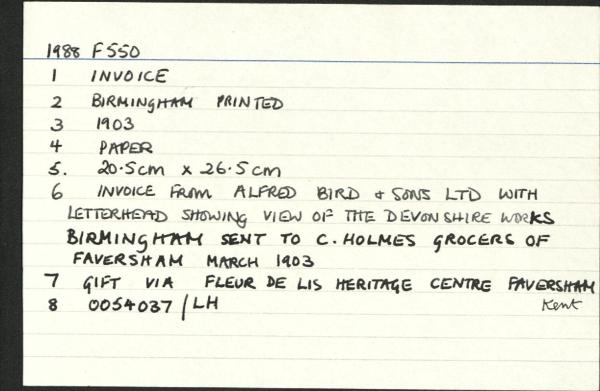 1988 F550
1 INVOICE
2 BIRMINGHAM PRINTED
3 1903
4 PAPER
5. 20.5cm x 26.5cm
6 INVOICE FROM ALFRED BIRD & SONS LTD WITH
LETTERHEAD SHOWING VIEW OF THE DEVONSHIRE WORKS
BIRMINGHAM SENT TO C. HOLMES GROCERS OF
FAVERSHAM MARCH 1903
7 GIFT VIA FLEUR DE LIS HERITAGE CENTRE FAVERSHAM
8 0054037/LH Kent